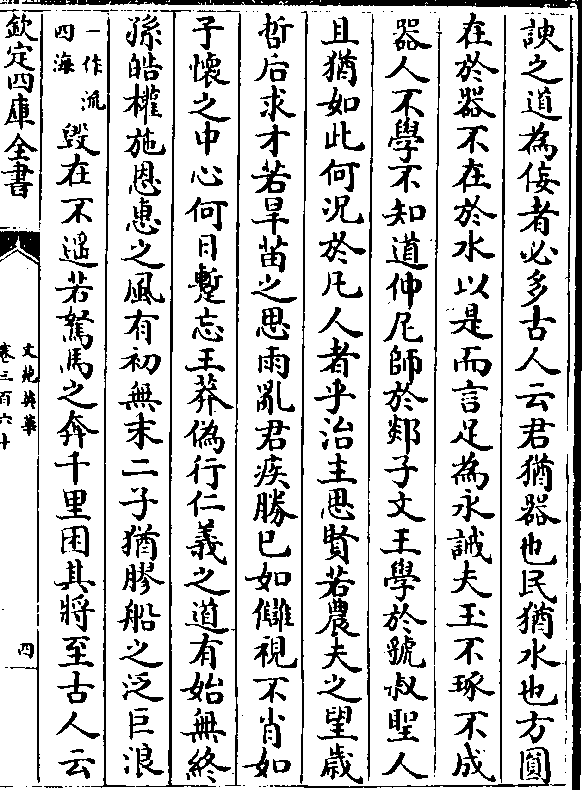 諛之道為佞者必多古人云君猶器也民猶水也方圓
在於器不在於水以是而言足為永誡夫玉不琢不成
器人不學不知道仲尼師於郯子文王學於虢叔聖人
且猶如此何況於凡人者乎治主思賢若農夫之望歲
哲后求才若旱苗之思雨亂君疾勝己如讎視不肖如
子懷之中心何日蹔忘王莽偽行仁義之道有始無終
孫皓權施恩惠之風有初無末二子猶膠船之泛巨浪
一作流四海
毀在不遥若駑馬之奔千里困其將至古人云
欽定四庫全書
文苑英華
卷三百六十
四